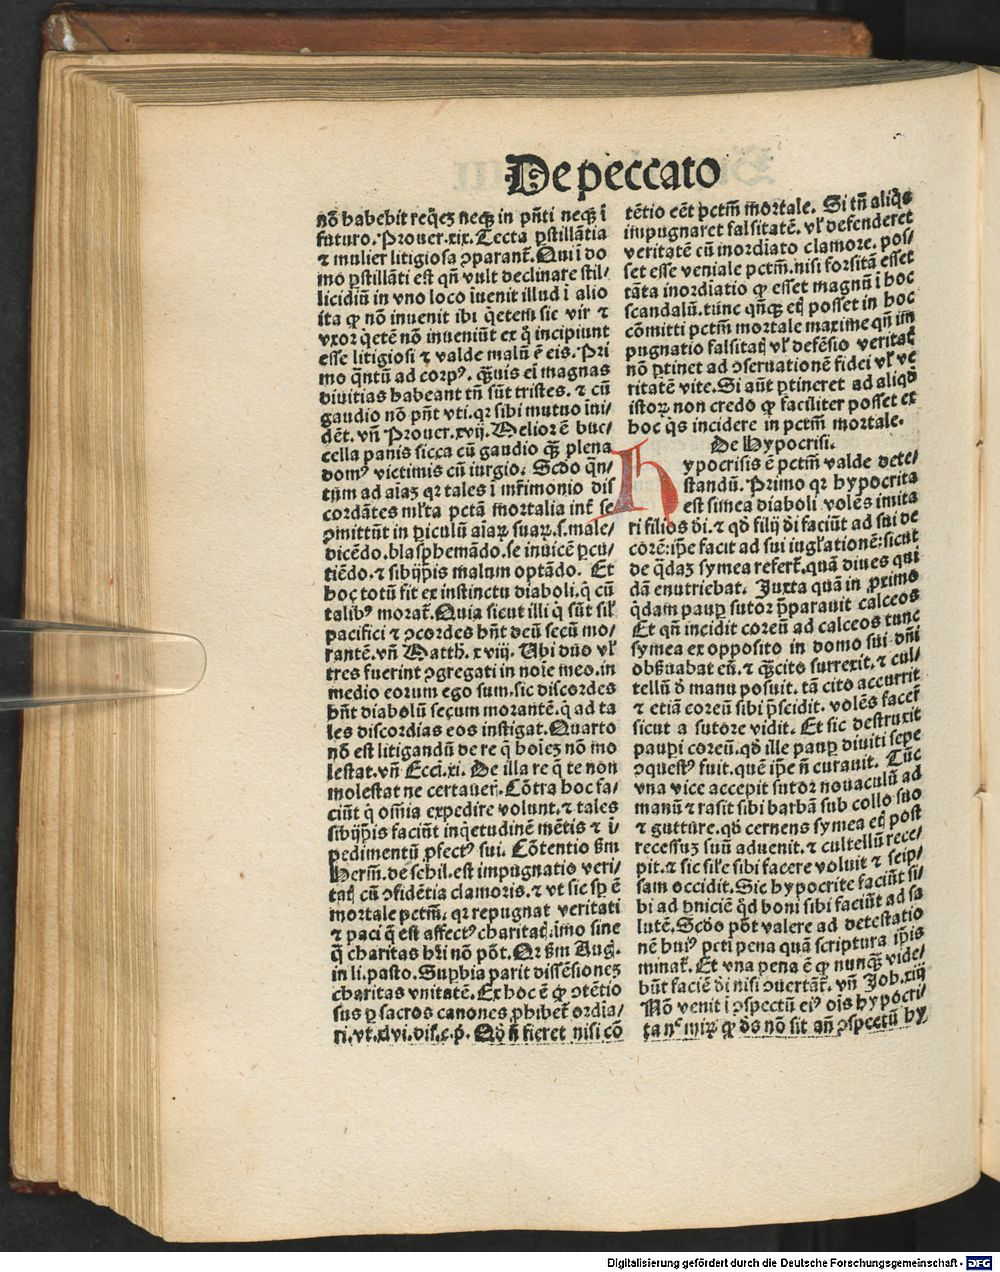 De peccato
nō habebit req̄eꝫ neqꝫ in p̄nti neqꝫ ī
futuro. Prouer. xix. Tecta ꝑstillātia
⁊ mulier litigiosa ꝯparant᷑. Qui ī do
mo ꝑstillāti est qn̄ vult declinare stil/
licidiū in vno loco īuenit illud ī alio
ita ꝙ nō inuenit ibi q̄etem sic vir ⁊
vxor q̄etē nō inueniūt ex q̇ incipiunt
esse litigiosi ⁊ valde malū ē eis. Pri
mo q̄ntū ad corpꝰ. q̄uis ei magnas
diuitias habeant tn̄ sūt tristes. ⁊ cū
gaudio nō pn̄t vti. qꝛ sibi mutuo īui/
dēt. vn̄ Prouer. xvij. Melior ē buc/
cella panis sicca cū gaudio q̄ꝫ plena
domꝰ victimis cū iurgio. Scd̄o q̄n/
tūm ad aīaꝫ qꝛ tales ī mr̄imonio dis
cordātes ml̄ta pctā mortalia int᷑ se
ꝯmittūt in ꝑiculū aīaꝝ suaꝝ. s. male/
dicēdo. blasphemādo. se inuicē ꝑcu/
tiēdo. ⁊ sibijp̄is malum optādo. Et
hoc totū fit ex instinctu diaboli. q̇ cū
talibꝰ morat᷑. Quia sicut illi q̇ sūt sil̄
pacifici ⁊ ꝯcordes hn̄t deū secū mo/
rantē. vn̄ Matth. xviij. Ubi duo vl̄
tres fuerint ꝯgregati in noīe meo. in
medio eorum ego sum. sic discordes
hn̄t diabolū secum morantē. q̇ ad ta
les discordias eos instigat. Quarto
nō est litigandū de re q̄ hoīeꝫ nō mo
lestat. vn̄ Ecci. xi. De illa re q̄ te non
molestat ne certauer̄. Cōtra hoc fa/
ciūt q̇ om̄ia expedire volunt. ⁊ tales
sibijp̄is faciūt inq̇etudinē mētis ⁊ ī/
pedimentū ꝓfectꝰ sui. Cōtentio ẜm
Herm̄. de schil. est impugnatio veri/
tatꝭ cū ꝯfidētia clamoris. ⁊ vt sic sꝑ ē
mortale pctm̄. qꝛ repugnat veritati
⁊ paci q̄ est affectꝰ charitatꝭ. imo sine
q̄ charitas hr̄i nō pōt. Qꝛ ẜm Aug.
in li. pasto. Suꝑbia parit dissēsioneꝫ
charitas vnitatē. Ex hoc ē ꝙ ꝯtētio
sus ꝑ sacros canones ꝓhibet᷑ ordīa/
ri. vt. xlvi. dis. c. p. Qd̄ n̄ fieret nisi cō
tētio eēt pctm̄ mortale. Si tn̄ aliq̇s
impugnaret falsitatē. vl̄ defenderet
veritatē cū inordīato clamore. pos/
set esse veniale pctm̄. nisi forsitā esset
tāta inordīatio ꝙ esset magnū ī hoc
scandalū. tunc qn̄qꝫ etꝭ posset in hoc
cōmitti pctm̄ mortale maxime qn̄ im
pugnatio falsitatꝭ vl̄ defēsio veritatꝭ
nō ꝑtinet ad ꝯseruationē fidei vl̄ ve
ritatē vite. Si aūt ꝑtineret ad aliqd̄
istoꝝ non credo ꝙ faciliter posset ex
hoc q̇s incidere in pctm̄ mortale.
De Hypocrisi.
Hypocrisis ē pctm̄ valde dete/
standū. Primo qꝛ hypocrita
est simea diaboli volēs imita
ri filios dī. ⁊ qd̄ filij dī faciūt ad sui de
corē: ip̄e facit ad sui iugl̄ationē: sicut
de q̄daꝫ symea refert᷑. quā diues qui
dā enutriebat. Juxta quā in ꝓximo
q̇dam pauꝑ sutor p̄parauit calceos
Et qn̄ incidit coreū ad calceos tunc
symea ex opposito in domo sui dn̄i
obẜuabat eū. ⁊ q̄ꝫcito surrexit. ⁊ cul/
tellū d̄ manu posuit. tā cito accurrit
⁊ etiā coreū sibi p̄scidit. volēs facer̄
sicut a sutore vidit. Et sic destruxit
pauꝑi coreū. qd̄ ille pauꝑ diuiti sepe
ꝯquestꝰ fuit. quē ip̄e n̄ curauit. Tūc
vna vice accepit sutor nouaculū ad
manū ⁊ rasit sibi barbā sub collo suo
⁊ gutture. qd̄ cernens symea etꝭ post
recessuꝫ suū aduenit. ⁊ cultellū rece/
pit. ⁊ sic sil̄e sibi facere voluit ⁊ seip/
sam occidit. Sic hypocrite faciūt si/
bi ad ꝑniciē qd̄ boni sibi faciūt ad sa
lutē. Scd̄o pōt valere ad detestatio
nē huiꝰ pcti pena quā scriptura ip̄is
minat᷑. Et vna pena ē ꝙ nunqꝫ vide/
būt faciē dī nisi ꝯuertāt᷑. vn̄ Job. xiij
Nō venit ī ꝯspectū eiꝰ oīs hypocri/
ta nec miꝝ ꝙ ds̄ nō sit an̄ ꝯspectū hy
Digitalisierung gefördert durch die Deutsche Forschungsgemeinschaft - DFG